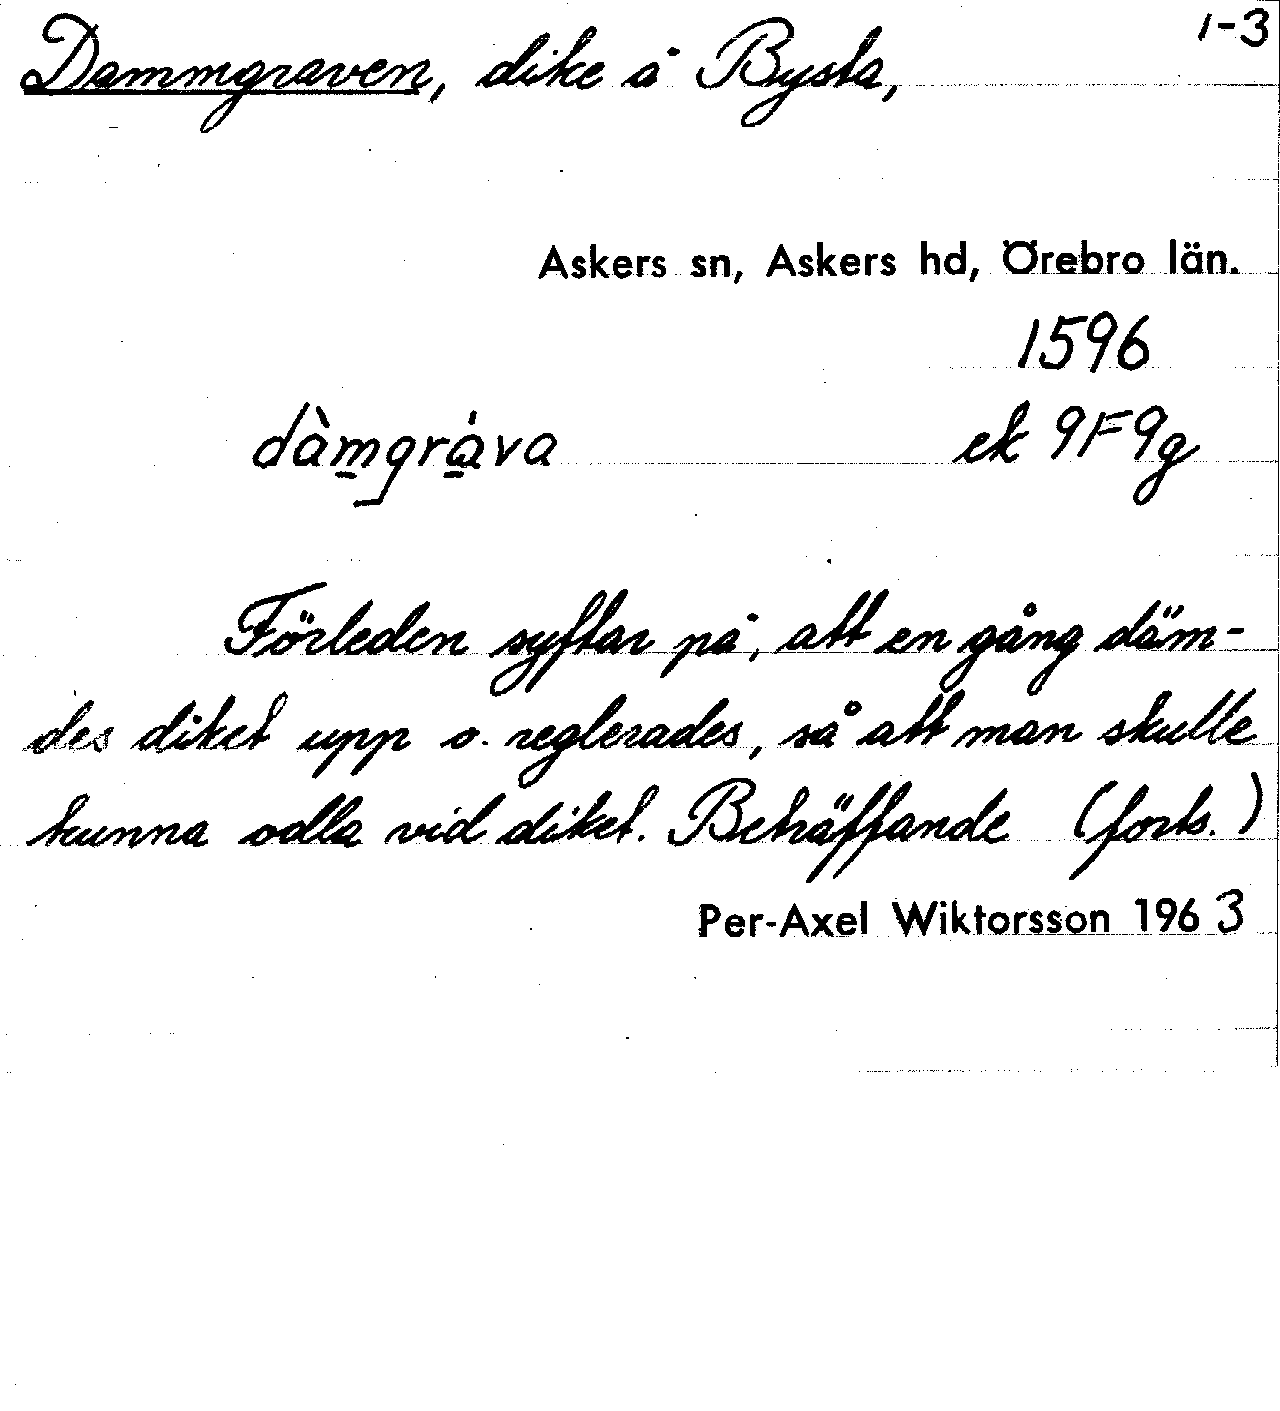 1-3
Dammgraven, dike å Bysta,
Askers sn, Askers hd, Örebro län.
1596
dàm̠grá̠va ek 9F9g
Förleden syftar på, att en gång däm-
des diket upp o. reglerades, så att man skulle
kunna odla vid diket. Beträffande (forts.)
Per-Axel Wiktorsson 1963